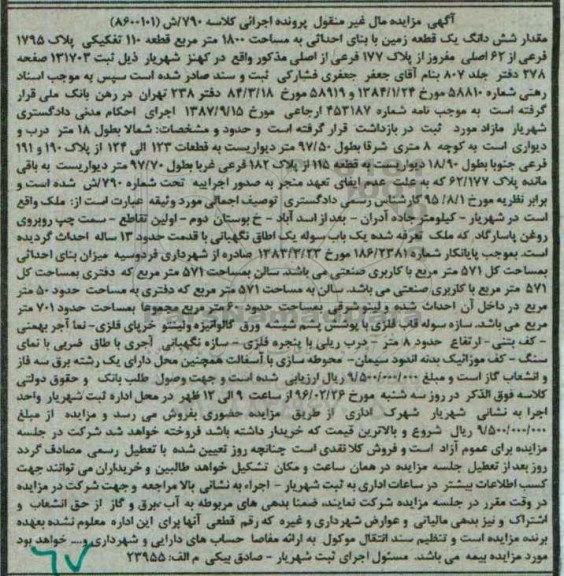 آگهی مزایده مال غیر منقول پرونده اجرائی کلاسه ۷۹۰/ش (۸۶۰۰۱۰۱)
مقدار شش دانگ یک قطعه زمین با بنای احداثی به مساحت ۱۸۰۰ متر مربع قطعه ۱۱۰ تفکیکی پلاک ۱۷۹۵
فرعی از ۶۲ اصلی مفروز از پلاک ۱۷۷ فرعی از اصلی مذکور واقع در کهنز شهریار ذیل ثبت ۱۳۱۷۰۳ صفحه
۲۷۸ دفتر جلد ۸۰۷ بنام آقای جعفر جعفری فشارکی ثبت و سند صادر شده است سپس به موجب اسناد
رهنی شماره ۵۸۸۱۰ مورخ ۱۳۸۴/۱/۲۴ و ۵۸۹۱۹ مورخ ۸۴/۳/۱۸ دفتر ۲۳۸ تهران در رهن بانک ملی قرار
گرفته است به موجب نامه شماره ۴۵۳۱۸۷ ارجاعی مورخ ۱۳۸۷/۹/۱۵ اجرای احکام مدنی دادگستری
شهریار مازاد مورد ثبت در بازداشت قرار گرفته است و حدود و مشخصات: شمالا بطول ۱۸ متر درب و
دیواری است به کوچه ۸ متری شرقا بطول ۹۷/۵۰ متر دیواریست به قطعات ۱۲۳ الی ۱۲۴ از پلاک ۱۹۰ و ۱۹۱
فرعی جنوبا بطول ۱۸/۹۰ دیواریست به قطعه ۱۱۵ از پلاک ۱۸۲ فرعی غربا بطول ۹۷/۷۰ متر دیواریست به باقی
مانده پلاک ۶۲/۱۷۷ که به علت عدم ایفای تعهد منجر به صدور اجراییه تحت شماره ۷۹۰/ش شده است و
برابر نظریه مورخ ۹۵/۸/۱ کارشناس رسمی دادگستری توصیف اجمالی مورد وثیقه عبارت است از: ملک واقع
است در شهریار - کیلومتر جاده آدران - بعد از اسد آباد - خ بوستان دوم - اولین تقاطع - سمت چپ روبروی
روغن پاسارگاد که ملک تعرفه شده یک باب سوله یک اطاق نگهبانی با قدمت حدود ۱۳ ساله احداث گردیده
است. بموجب پایانکار شماره ۱۸۶/۲۳۸۱ مورخ ۱۳۸۳/۳/۲۳ صادره از شهرداری فردوسیه میزان بنای احداثی
بمساحت کل ۵۷۱ متر مربع با کاربری صنعتی می باشد. سالن بمساحت ۵۷۱ متر مربع که دفتری بمساحت کل
۵۷۱ متر مربع با کاربری صنعتی می باشد. سالن به مساحت ۵۷۱ متر مربع که دفتری به مساحت حدود ۵۰ متر
مربع در داخل آن احداث شده و لیزشرقی بمساحت حدود متر مربع مجموعا بمساحت حدود ۷۰۱ متر
مربع می باشد. سازه سوله قاب فلزی با پوشش پشم شیشه ورق گالوانیزه ولیستو خرپای فلزی- نما آجر بهمنی
- کف بتنی - ارتفاع حدود ۸ متر - درب ریلی با پنجره فلزی - سازه نگهبانی آجری با طاق ضربی با نمای
سنگ - کف موزائیک بدنه اندود سیمان- محوطه سازی با آسفالت همچنین محل دارای یک رشته برق سه فاز
و انشعاب گاز است و مبلغ ۹/۵۰۰/۰۰۰/۰۰۰ ریال ارزیابی شده است و جهت وصول طلب بانک و حقوق دولتی
کلاسه فوق الذکر در روز سه شنبه مورخ ۹۶/۰۲/۲۶ از ساعت ۹ الی ۱۲ ظهر در محل اداره ثبت شهریار واحد
اجرا به نشانی شهریار شهرک اداری از طریق مزایده حضوری بفروش می رسد و مزایده از مبلغ
۹/۵۰۰/۰۰۰/۰۰۰ ریال شروع و بالاترین قیمت که خریدار داشته باشد فروخته خواهد شد شرکت در جلسه
مزایده برای عموم آزاد است و فروش کلا نقدی است چنانچه روز تعیین شده با تعطیل رسمی مصادف گردد
روز بعد از تعطیل جلسه مزایده در همان ساعت و مکان تشکیل خواهد طالبین و خریداران می توانند جهت
کسب اطلاعات بیشتر در ساعات اداری به ثبت شهریار - اجراء به نشانی بالا مراجعه و جهت شرکت در مزایده
در وقت مقرر در جلسه مزایده شرکت نمایند، ضمنا بدهی های مربوطه به آب -برق و گاز از حق انشعاب و
اشتراک و نیز بدهی مالیاتی و عوارض شهرداری و غیره که رقم قطعی آنها برای این اداره معلوم نشده بعهده
برنده مزایده است و تنظیم سند انتقال موکول به ارائه مفاصا حساب های دارایی و شهرداری و... خواهد بود
مورد مزایده بیمه می باشد. مسئول اجرای ثبت شهریار - صادق بیکی م الف: ۲۳۹۵۵
۶۷